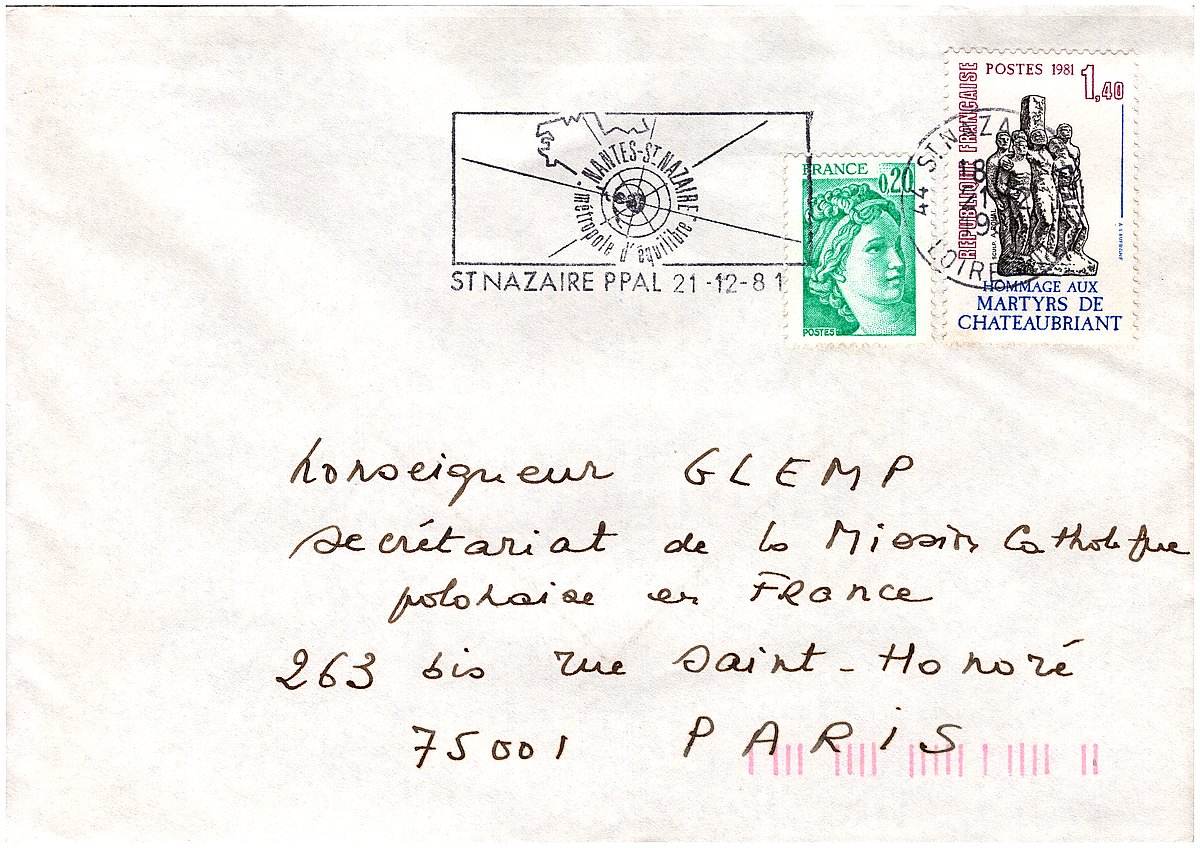 NANTES-ST.NAZAIRE
métropole d'équilibre
ST NAZAIRE PPAL 21-12-81
FRANCE
0,20
POSTES
POSTES 1981
1,40
REPUBLIQUE FRANÇAISE
HOMMAGE AUX
MARTYRS DE
CHATEAUBRIANT
44 ST. NAZA
18
LOIRE
Monseigneur GLEMP
secrétariat de la Mission Catholique
polonaise en France
263 bis rue Saint-Honoré
75001 PARIS